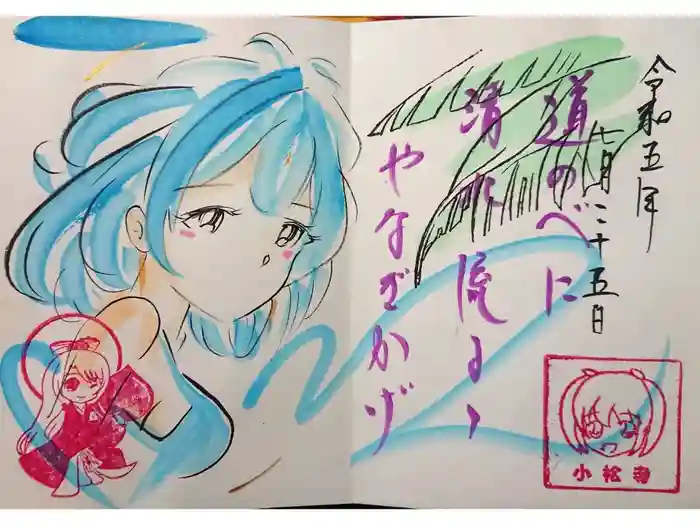 令和五年
七月二十五日
道のべに
清水流るゝ
やなぎかげ
小松寺